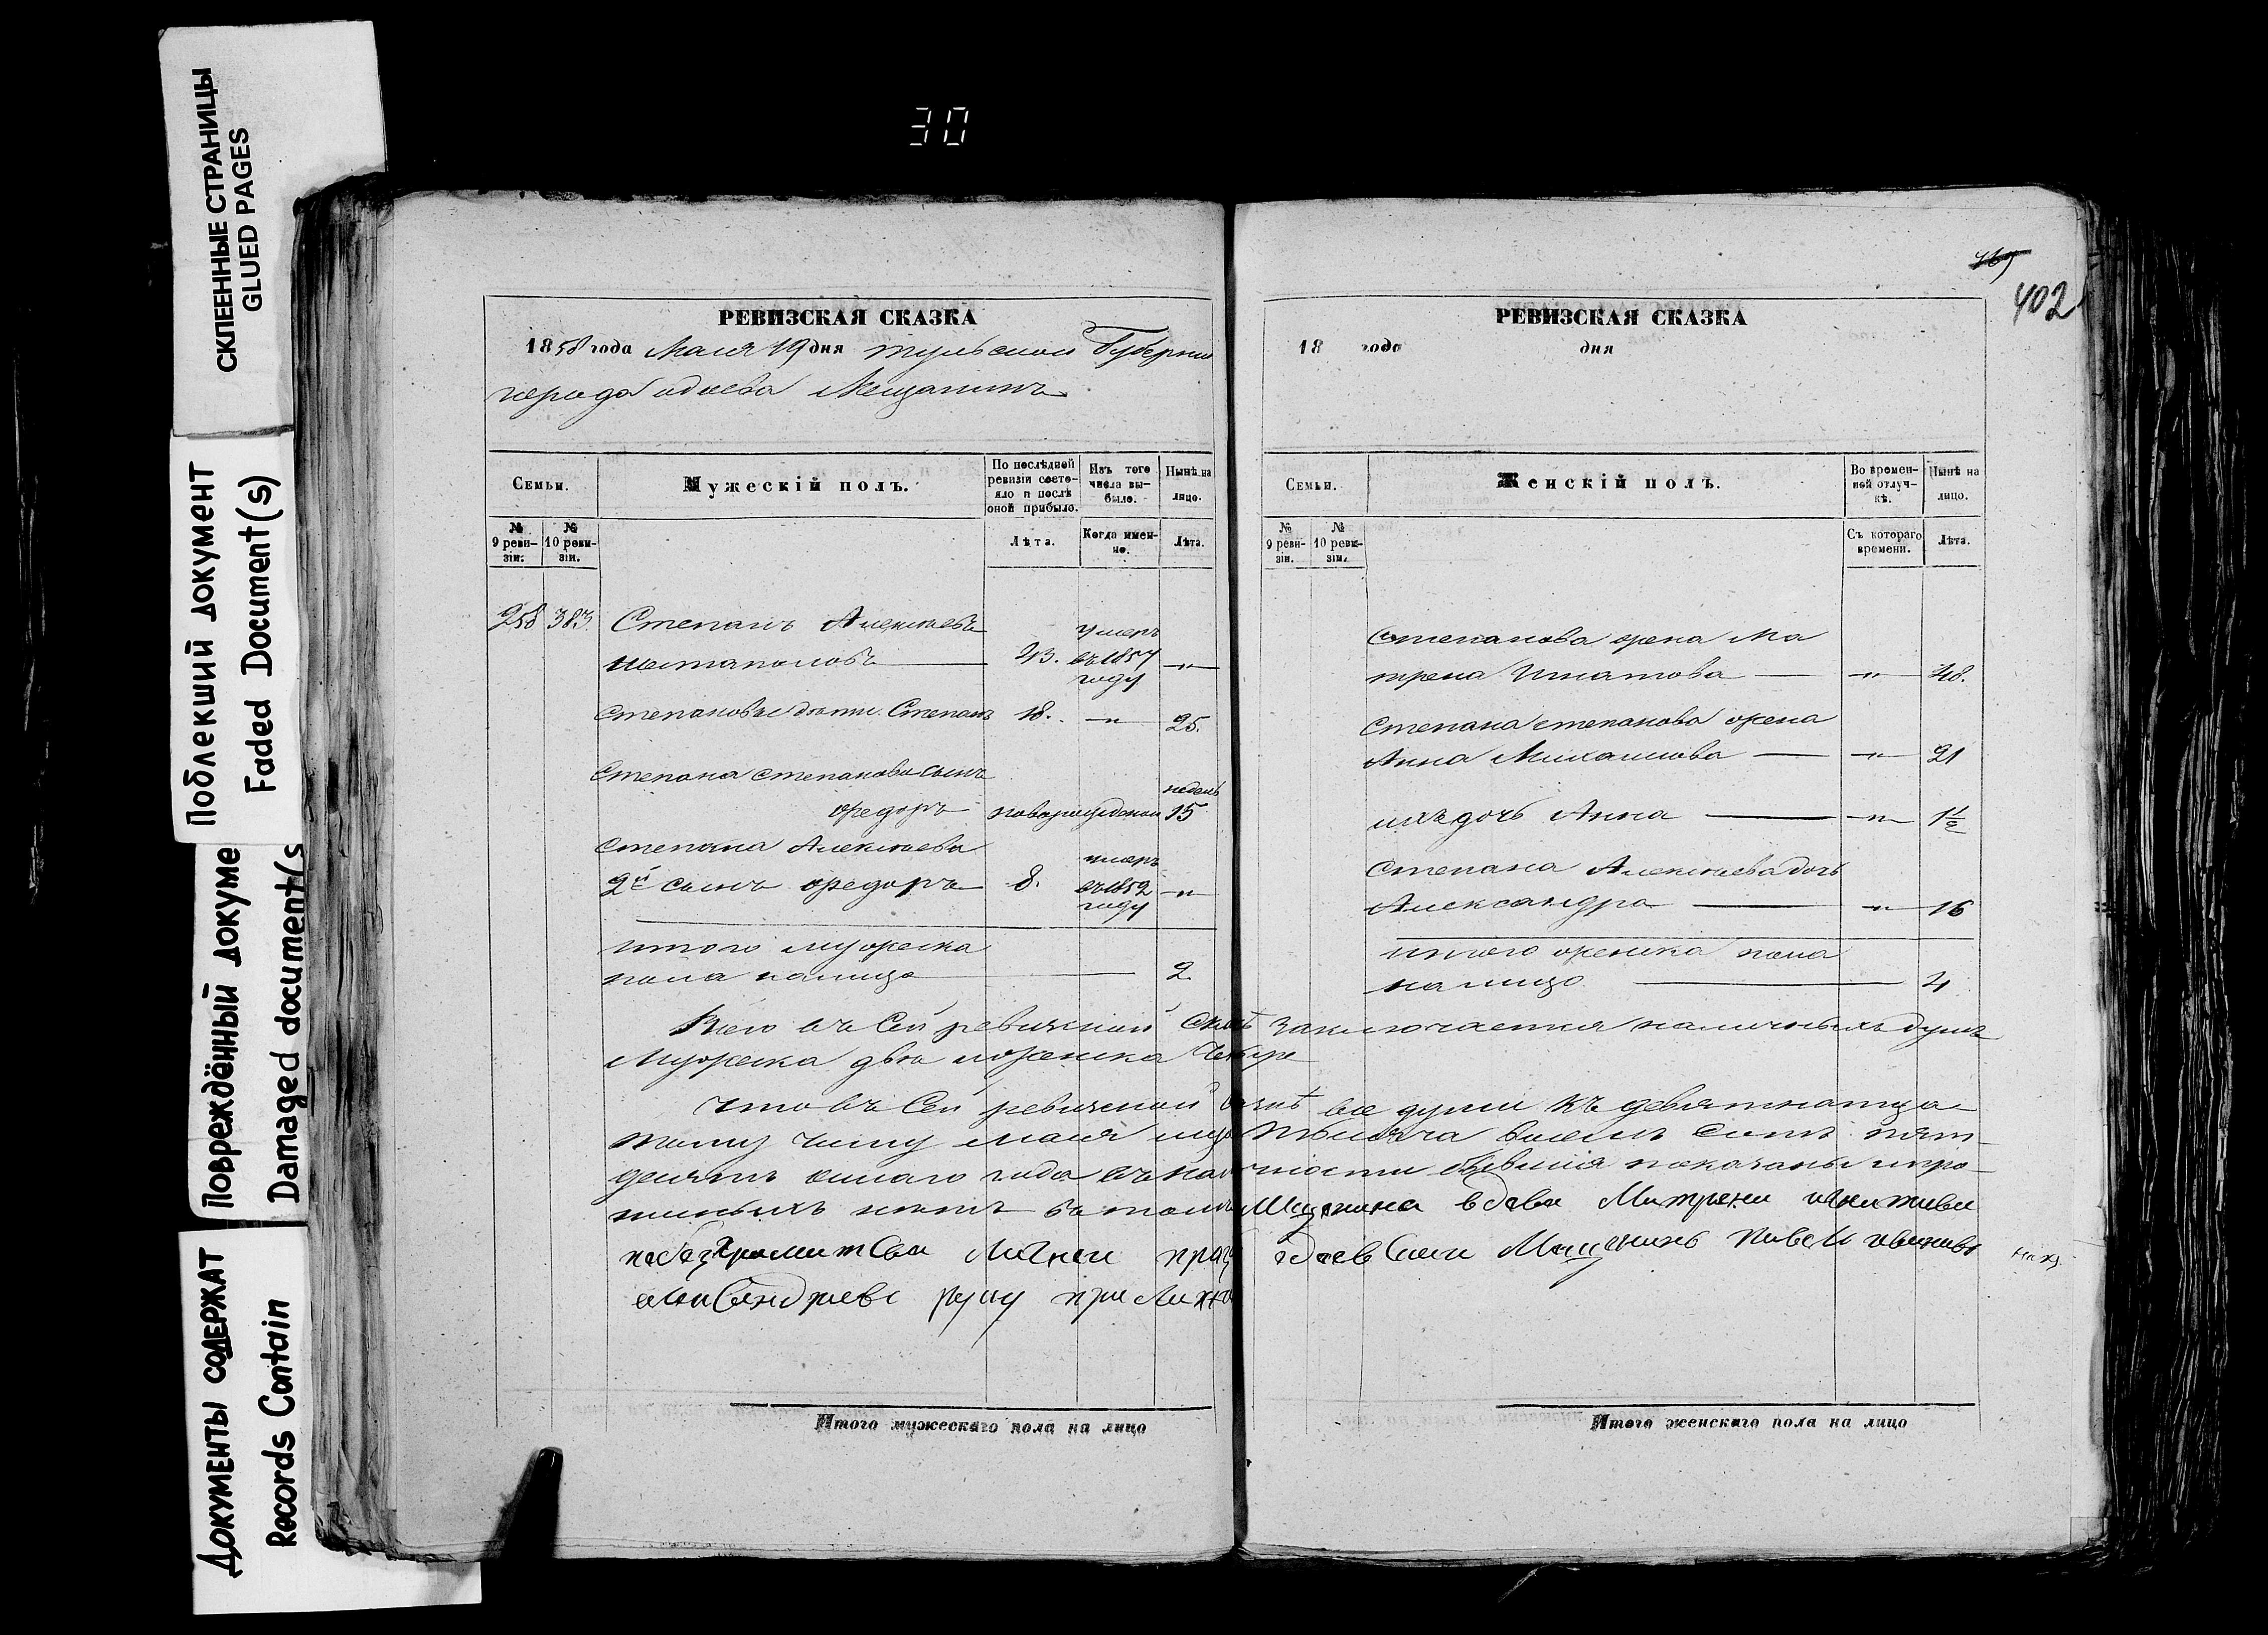 СКЛЕЕННЫЕ СТРАНИЦЫ
GLUED PAGES
Поблекший документ
Faded Document(s)
Повреждённый докуме
Damaged document(s
Документы содержат
Records Contain
30
РЕВИЗСКАЯ СКАЗКА
1858 года Маія 19 дня Тульской Губерніи
города Одоева Мещанинъ
Семьи.
Мужескій полъ.
По послѣдней ревизіи состояло и послѣ оной прибыло.
Изъ того числа выбыло.
Нынѣ на лицо.
№ 9 ревизіи.
№ 10 ревизіи.
Лѣта.
Когда именно.
Лѣта.
258 383 Степанъ Алексѣевъ
43. умеръ въ 1857 году —"—
Степановы дѣти. Степанъ 18. —"— 25.
Степана Степанова сынъ
Ѳедоръ новорожденный недель 15
Степана Алексѣева
2й сынъ Ѳедоръ 8. умеръ въ 1852 году —"—
Итого мужеска
пола налицо 2
Итого мужескаго пола на лицо
169
402
РЕВИЗСКАЯ СКАЗКА
18 года дня
Семьи.
Женскій полъ.
Во временной отлучкѣ.
Нынѣ на лицо.
№ 9 ревизіи.
№ 10 ревизіи.
Съ котораго времени.
Лѣта.
Степанова жена Ма
трена Игнатова —"— 48.
Степана Степанова жена
Анна Михаилова —"— 21
ихъ дочь Анна —"— 1½
Степана Алексѣева дочь
Александра —"— 16
Итого женска пола
налицо 4
Всего въ сей ревизской скаскѣ заключается наличныхъ душъ
Мужеска два и женска четыре
Что въ сей ревизской скаскѣ все души къ девятнатца
тому числу маія месяца тысяча восемь сотъ пять
десятъ осмаго года въ наличности бывшія показаны и про
писныхъ нетъ въ томъ Мещанка вдова Матрена
Мещанинъ Павелъ
руку приложилъ
Итого женскаго пола на лицо